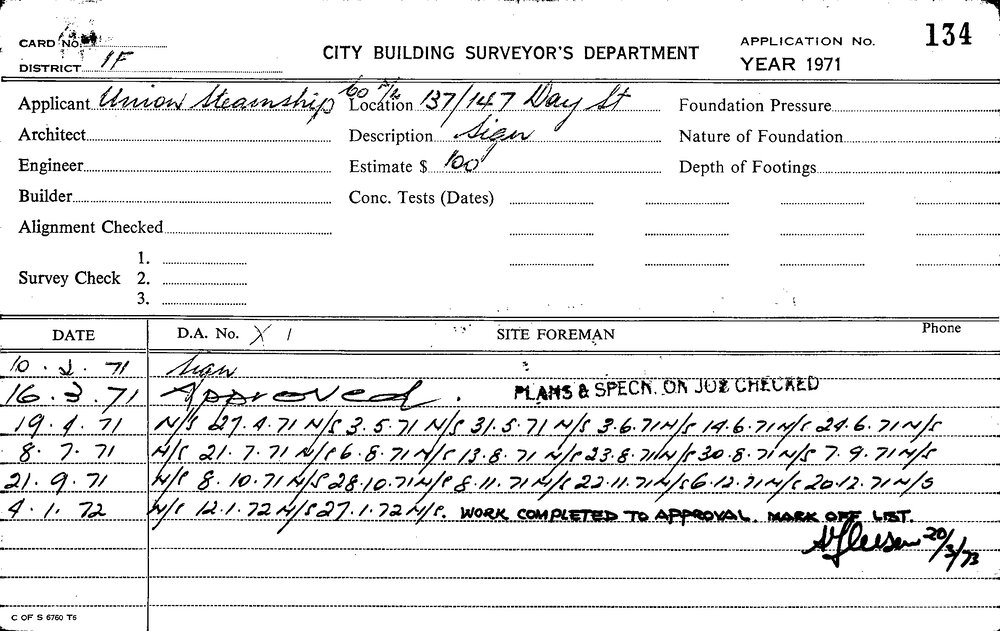 CARD No.
DISTRICT 1F
CITY BUILDING SURVEYOR'S DEPARTMENT
APPLICATION No. 134
YEAR 1971
Applicant Union Steamship Co P/L Location 137/147 Day St Foundation Pressure
Architect Description Sign Nature of Foundation
Engineer Estimate $ 100 Depth of Footings
Builder Conc. Tests (Dates)
Alignment Checked
1.
Survey Check 2.
3.
DATE D.A. No. X 1 SITE FOREMAN Phone
10. 2. 71 Sign
16. 3. 71 Approved. PLANS & SPECN. ON JOB CHECKED
19. 4. 71 N/S 27.4.71 N/S 3.5.71 N/S 31.5.71 N/S 3.6.71 N/S 14.6.71 N/S 24.6.71 N/S
8. 7. 71 N/S 21.7.71 N/S 6.8.71 N/S 13.8.71 N/S 23.8.71 N/S 30.8.71 N/S 7.9.71 N/S
21. 9. 71 N/S 8.10.71 N/S 28.10.71 N/S 8.11.71 N/S 22.11.71 N/S 6.12.71 N/S 20.12.71 N/S
4. 1. 72 N/S 12.1.72 N/S 27.1.72 N/S. WORK COMPLETED TO APPROVAL. MARK OFF LIST.
20/3/73
C OF S 6760 T6